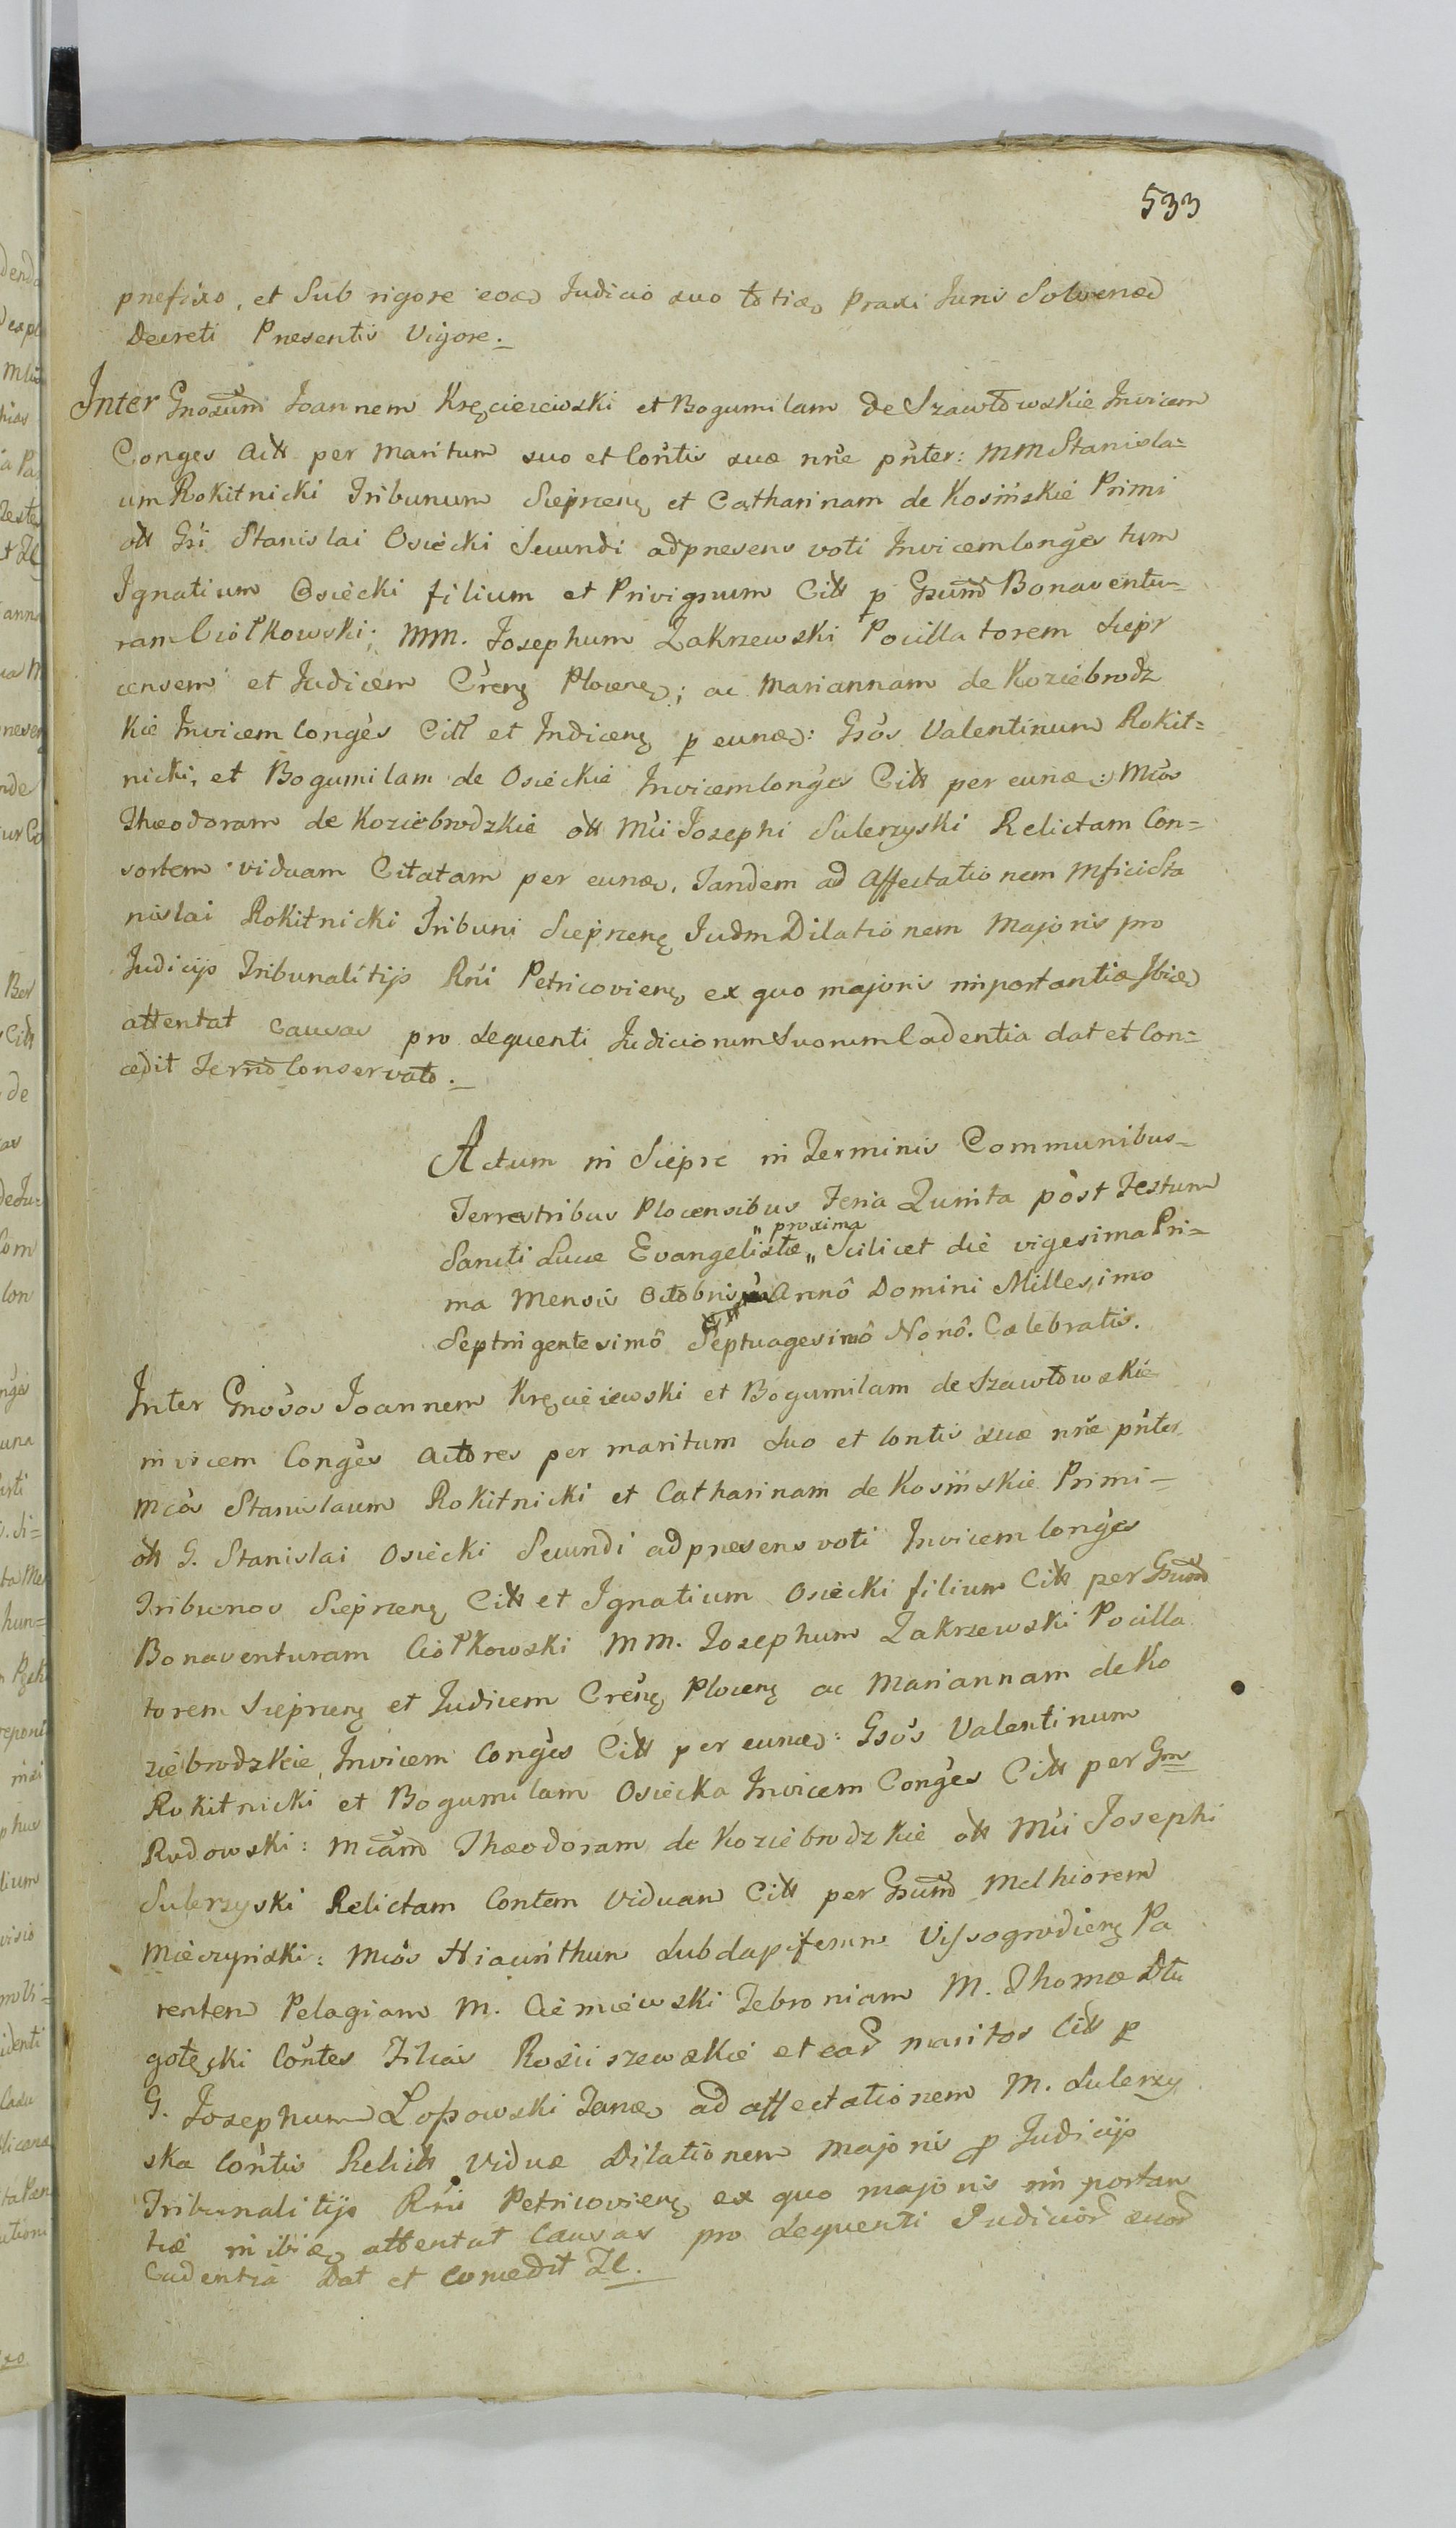 533
prefixo, et Sub rigore eoad Judicio suo totiad Praxi Juris Solvenad
Decreti Presentis Vigore.
Inter Gnosum Joannem Kręcieiewski et Bogumilam de Szawłowskie Invicem
Conges Actt per Maritum suo et Contis suæ nre pnter: MM Stanisla=
um Rokitnicki Tribunum Sieprcen et Catharinam de Kosińskie Primi
ott Gsi Stanislai Osiécki Secundi adpresens voti Invicem Conges tum
Ignatium Osiécki filium et Privignum Citt p Gsumd Bonaventu=
ram Ciółkowski; MM. Josephum Zakrzewski Pocillatorem Siepr
censem et Judicem Cren Plocen; ac Mariannam de Koziébrodz
kie Invicem Conges Citt et Judicen p eunad: Gsos Valentinum Rokit=
nicki, et Bogumilam de Osiéckie Invicem Conges Citt per eunad: Mcos
Theodoram de Koziébrodzkie ott Mci Josephi Sulerzyski Relictam Con=
sortem viduam Citatam per eunad. Tandem ad Affectationem Mfici Sta
nislai Rokitnicki Tribuni Sieprcen Judm Dilationem Majoris pro
Judicijs Tribunalitijs Rni Petricovien ex quo majoris importantiæ Ibiad
attentat causas pro Sequenti Judiciorum Suorum Cadentia dat et Con=
cedit Termo Conservato.
Actum in Siepre in Terminis Communibus
Terrestribus Plocensibus Feria Quinta pòst Festum
Sancti Lucæ Evangelistæ „proxima„ Scilicet die vigesima Pri=
ma Mensis Octobris Annô Domini Millesimo
Septingentesimô Septuagesimô Nonô. Celebratis.
Inter Gnosos Joannem Kręcieiewski et Bogumilam de Szawłowskie
invicem Conges Actores per maritum suo et Contis suæ nre pntes
Mcos Stanislaum Rokitnicki et Catharinam de Kosińskie Primi=
ott G. Stanislai Osiécki Secundi adpresens voti Invicem Conges
Tribunos Sieprcen Citt et Ignatium Osiécki filium Citt per Gsumd
Bonaventuram Ciółkowski MM. Josephum Zakrzewski Pocilla
torem Sieprcen et Judicem Cren Plocen ac Mariannam de Ko
ziébrodzkie Invicem Conges Citt per eunad: Gsos Valentinum
Rokitnicki et Bogumilam Osiecka Invicem Conges Citt per Gm
Rudowski: Mcamd Theodoram de Koziébrodzkie ott Mci Josephi
Sulerzyski Relictam Contem Viduam Citt per Gsumd Melhiorem
Miéczyński: Mcos Hiacinthum Subdapiferum Vissogrodien Pa
rentem Pelagiam M. Ciémiéwski Febroniam M. Thomæ Dłu
gołęski Contes Filias Rosciszewskie et eard maritos Citt p
G. Josephum Lopowski Tanad ad affectationem M. Sulerzy
ska Contis Relictt Viduæ Dilationem majoris p Judicijs
Tribunalitijs Rni Petricovien ex quo majoris importan
tiæ inibiad attentat Causas pro Sequenti Judiciord suord
Cadentia Dat et Concedit Tl.